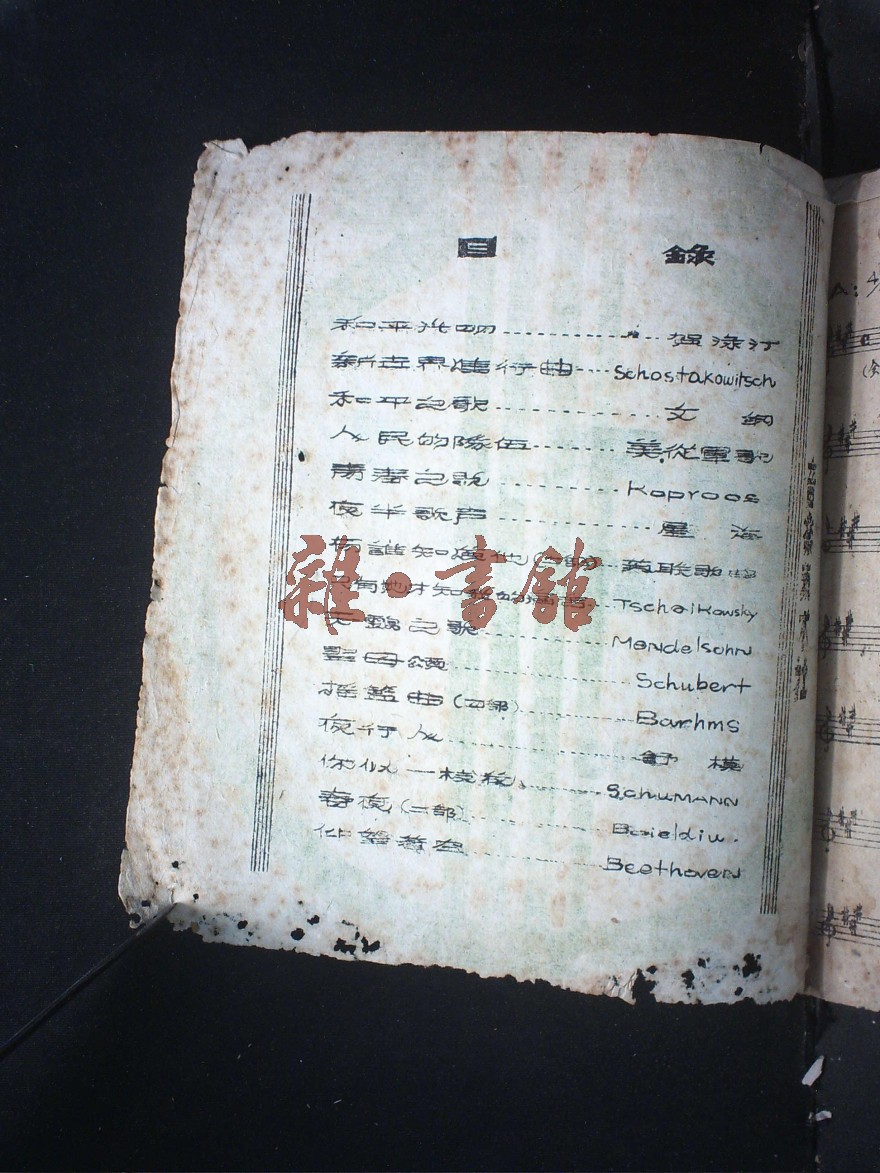 目 錄
和平光明 賀淥汀
新世界進行曲 Schostakowitsch
和平之歌 文
人民的隊伍 美從軍歌
青春之歌 Kaproos
夜半歌声 星海
誰知 他 歌曲
只有 才知我的 Tschaikowsky
之歌 Mendelsohn
聖母頌 Schubert
搖籃曲(四部) Barhms
夜行人 舒模
你似一枝 SchuMANN
春夜(二部) Boieldiu.
仰望 Beethoven
雜·書館